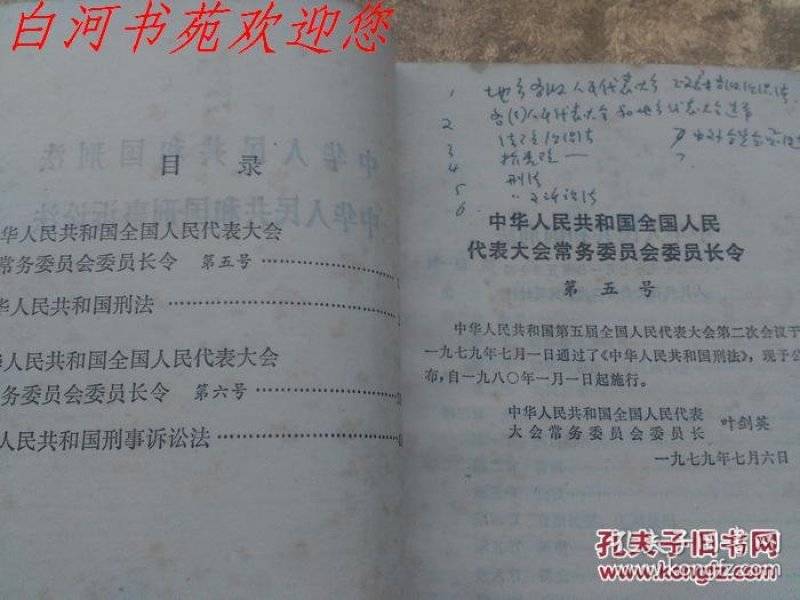 白河书苑欢迎您
目 录
华人民共和国全国人民代表大会
常务委员会委员长令 第五号
华人民共和国刑法
华人民共和国全国人民代表大会
务委员会委员长令 第六号
人民共和国刑事诉讼法
1 地方各级人民代表大会
2
3
4
5 刑法
6
中华人民共和国全国人民
代表大会常务委员会委员长令
第 五 号
中华人民共和国第五届全国人民代表大会第二次会议于
一九七九年七月一日通过了《中华人民共和国刑法》,现予公
布,自一九八〇年一月一日起施行。
中华人民共和国全国人民代表
大会常务委员会委员长 叶剑英
一九七九年七月六日
孔夫子旧书网
www.kongfz.com